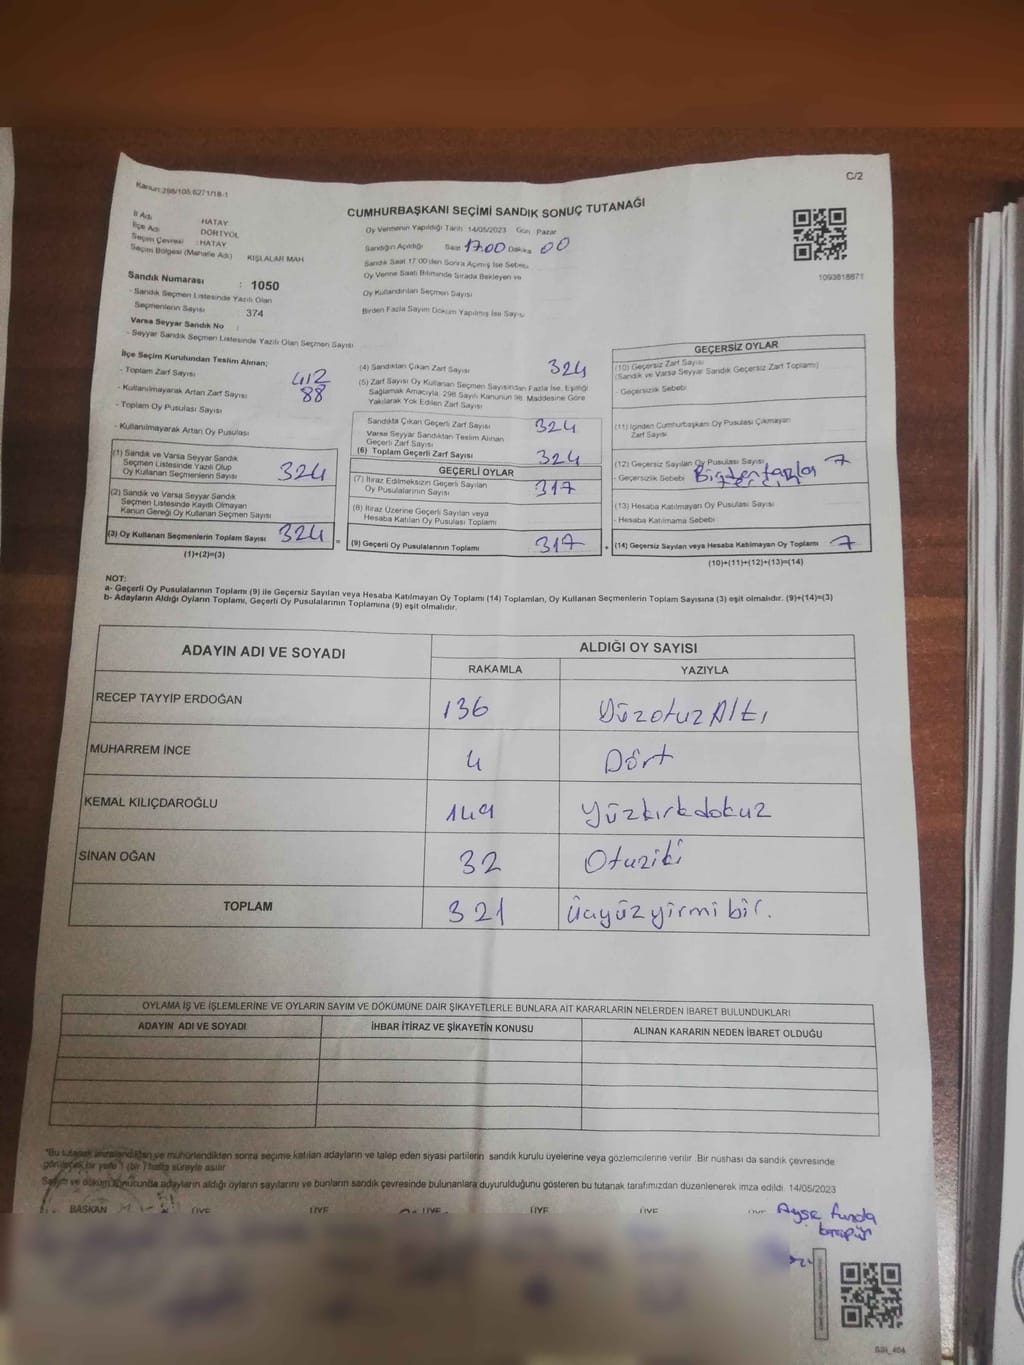 Kanun:298/105,6271/18-1
C/2
CUMHURBAŞKANI SEÇİMİ SANDIK SONUÇ TUTANAĞI
İl Adı HATAY
İlçe Adı DÖRTYOL
Seçim Çevresi :HATAY
Seçim Bölgesi (Mahalle Adı) KIŞLALAR MAH
Sandık Numarası : 1050
- Sandık Seçmen Listesinde Yazılı Olan
Seçmenlerin Sayısı 374
Varsa Seyyar Sandık No :
- Seyyar Sandık Seçmen Listesinde Yazılı Olan Seçmen Sayısı
Oy Vermenin Yapıldığı Tarih 14/05/2023 Gün: Pazar
Sandığın Açıldığı Saat 17.00 Dakika 00
Sandık Saat 17.00'den Sonra Açılmış İse Sebebi
Oy Verme Saati Bitiminde Sırada Bekleyen ve
Oy Kullandırılan Seçmen Sayısı
Birden Fazla Sayım Döküm Yapılmış İse Sayısı
1093818871
İlçe Seçim Kurulundan Teslim Alınan;
- Toplam Zarf Sayısı 412
- Kullanılmayarak Artan Zarf Sayısı 88
- Toplam Oy Pusulası Sayısı
- Kullanılmayarak Artan Oy Pusulası
(1) Sandık ve Varsa Seyyar Sandık
Seçmen Listesinde Yazılı Olup
Oy Kullanan Seçmenlerin Sayısı 324
(2) Sandık ve Varsa Seyyar Sandık
Seçmen Listesinde Kayıtlı Olmayan
Kanun Gereği Oy Kullanan Seçmen Sayısı
(3) Oy Kullanan Seçmenlerin Toplam Sayısı 324
(1)+(2)=(3)
(4) Sandıktan Çıkan Zarf Sayısı 324
(5) Zarf Sayısı Oy Kullanan Seçmen Sayısından Fazla İse, Eşitliği
Sağlamak Amacıyla, 298 Sayılı Kanunun 98. Maddesine Göre
Yakılarak Yok Edilen Zarf Sayısı
Sandıkta Çıkan Geçerli Zarf Sayısı 324
Varsa Seyyar Sandıktan Teslim Alınan
Geçerli Zarf Sayısı
(6) Toplam Geçerli Zarf Sayısı 324
GEÇERLİ OYLAR
(7) İtiraz Edilmeksizin Geçerli Sayılan
Oy Pusulalarının Sayısı 317
(8) İtiraz Üzerine Geçerli Sayılan veya
Hesaba Katılan Oy Pusulası Toplamı
= (9) Geçerli Oy Pusulalarının Toplamı 317
GEÇERSİZ OYLAR
(10) Geçersiz Zarf Sayısı
(Sandık ve Varsa Seyyar Sandık Geçersiz Zarf Toplamı)
- Geçersizlik Sebebi
(11) İçinden Cumhurbaşkanı Oy Pusulası Çıkmayan
Zarf Sayısı
(12) Geçersiz Sayılan Oy Pusulası Sayısı 7
- Geçersizlik Sebebi Birden fazla
(13) Hesaba Katılmayan Oy Pusulası Sayısı
- Hesaba Katılmama Sebebi
+ (14) Geçersiz Sayılan veya Hesaba Katılmayan Oy Toplamı 7
(10)+(11)+(12)+(13)=(14)
NOT:
a- Geçerli Oy Pusulalarının Toplamı (9) ile Geçersiz Sayılan veya Hesaba Katılmayan Oy Toplamı (14) Toplamları, Oy Kullanan Seçmenlerin Toplam Sayısına (3) eşit olmalıdır. (9)+(14)=(3)
b- Adayların Aldığı Oyların Toplamı, Geçerli Oy Pusulalarının Toplamına (9) eşit olmalıdır.
ADAYIN ADI VE SOYADI ALDIĞI OY SAYISI
RAKAMLA YAZIYLA
RECEP TAYYİP ERDOĞAN 136 YüzotuzAltı
MUHARREM İNCE 4 Dört
KEMAL KILIÇDAROĞLU 149 Yüzkırkdokuz
SİNAN OĞAN 32 Otuziki
TOPLAM 321 Üçyüzyirmi bir.
OYLAMA İŞ VE İŞLEMLERİNE VE OYLARIN SAYIM VE DÖKÜMÜNE DAİR ŞİKAYETLERLE BUNLARA AİT KARARLARIN NELERDEN İBARET BULUNDUKLARI
ADAYIN ADI VE SOYADI İHBAR İTİRAZ VE ŞİKAYETİN KONUSU ALINAN KARARIN NEDEN İBARET OLDUĞU
*Bu tutanak imzalandıktan ve mühürlendikten sonra seçime katılan adayların ve talep eden siyasi partilerin sandık kurulu üyelerine veya gözlemcilerine verilir .Bir nüshası da sandık çevresinde
görülecek bir yere 1 (bir ) hafta süreyle asılır
Sayım ve döküm sonucunda adayların aldığı oyların sayılarını ve bunların sandık çevresinde bulunanlara duyurulduğunu gösteren bu tutanak tarafımızdan düzenlenerek imza edildi. 14/05/2023
BAŞKAN ÜYE ÜYE ÜYE ÜYE ÜYE ÜYE Ayşe funda